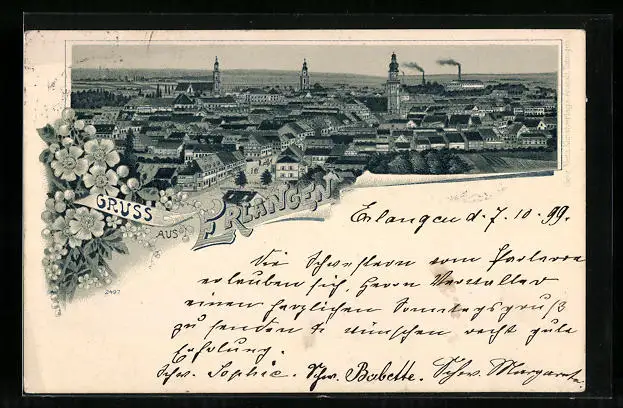 GRUSS
AUS
ERLANGEN
2497
Erlangen d. 7. 10. 99.
Die Schwestern vom
erlauben sich, Herrn Verwalter
einen herzlichen Sonntagsgruß
zu senden & wünschen recht gute
Erholung.
Schw. Sophie. Schw. Babette. Schw. Margarete